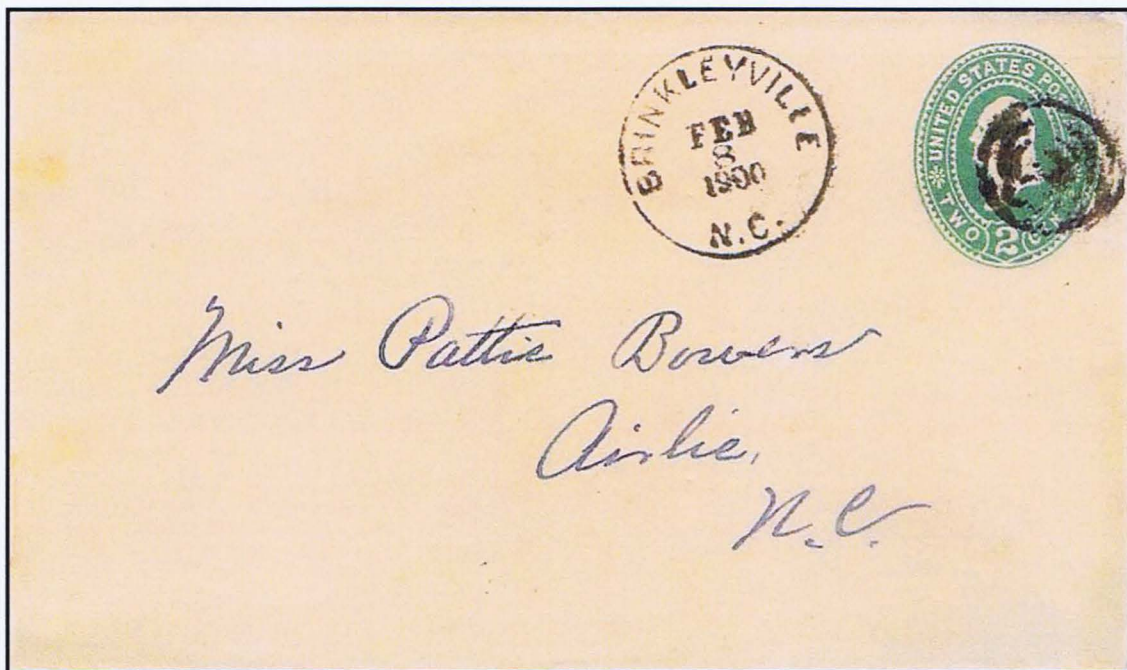 BRINKLEYVILLE
FEB
8
1900
N.C.
UNITED STATES PO
TWO 2 CEN
Miss Pattie Bowers
Airlie,
N.C.